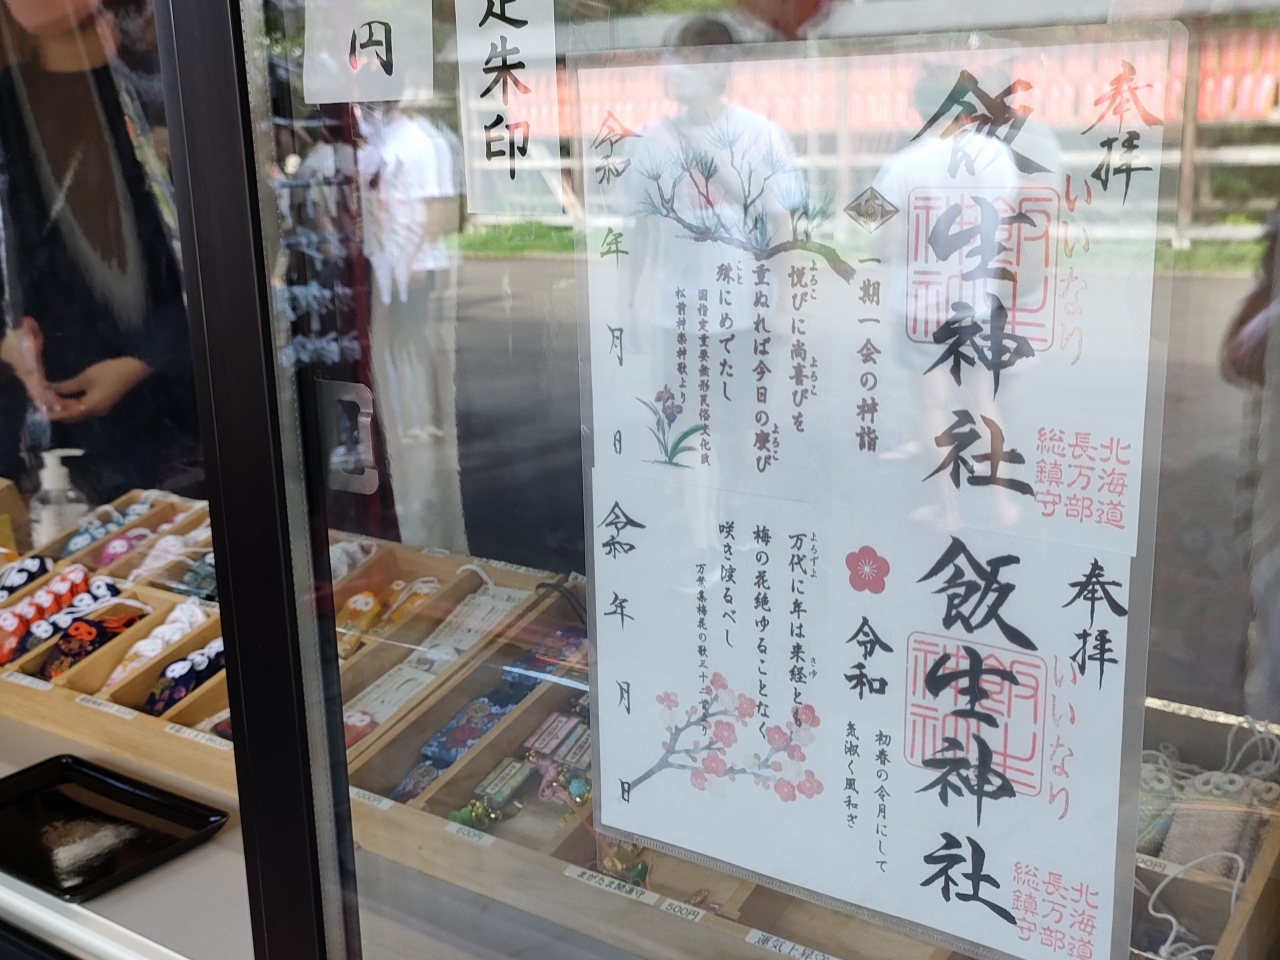 円
走朱印
奉拝
いいなり
飯生神社
飯生神社
北海道
長万部
総鎮守
一期一会の神詣
悦びに尚喜びを
よろこ
よろこ
重ぬれば今日の慶び
よろこ
殊にめでたし
こと
国指定重要無形民俗文化財
松前神楽神歌より
令和
年
月
日
奉拝
いいなり
飯生神社
飯生神社
北海道
長万部
総鎮守
令和
初春の令月にして
気淑く風和ぎ
万代に年は来経とも
よろずよ
梅の花絶ゆることなく
咲き渡るべし
令和
年
月
日
100円
600円
まがたま開運守
500円
運気上昇守